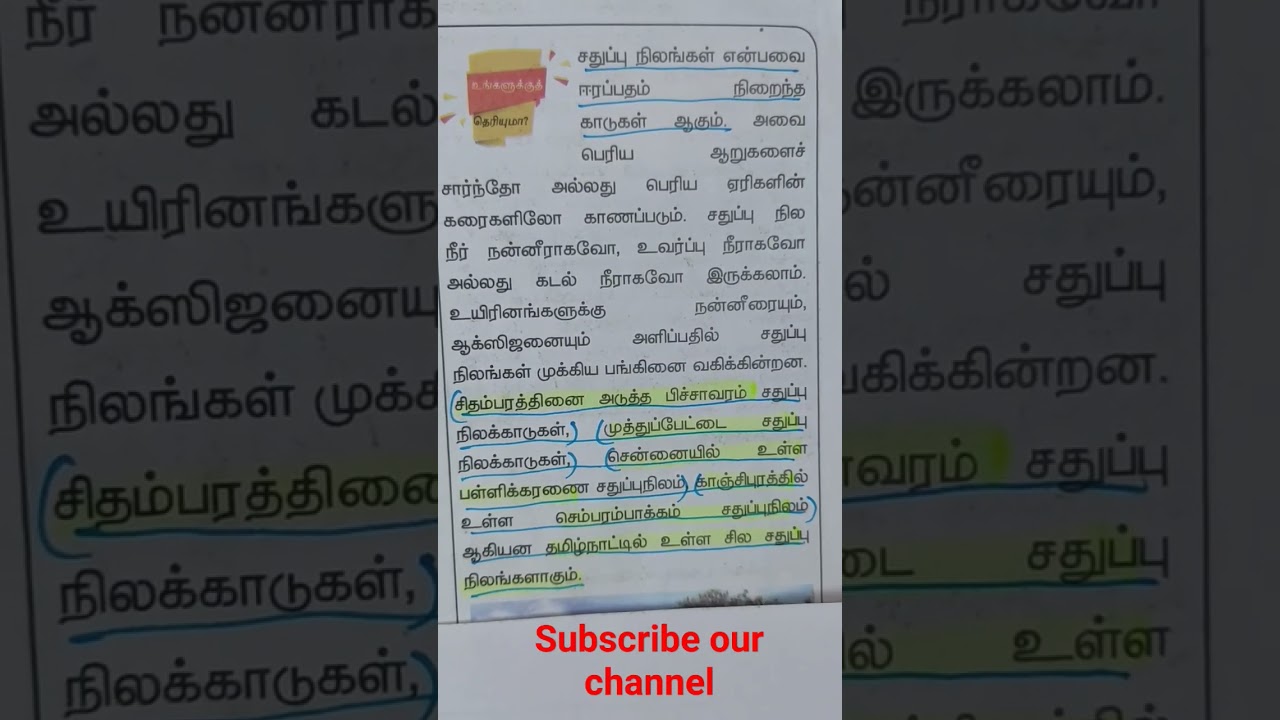 உங்களுக்குத்
தெரியுமா?
சதுப்பு நிலங்கள் என்பவை
ஈரப்பதம் நிறைந்த
காடுகள் ஆகும். அவை
பெரிய ஆறுகளைச்
சார்ந்தோ அல்லது பெரிய ஏரிகளின்
கரைகளிலோ காணப்படும். சதுப்பு நில
நீர் நன்னீராகவோ, உவர்ப்பு நீராகவோ
அல்லது கடல் நீராகவோ இருக்கலாம்.
உயிரினங்களுக்கு நன்னீரையும்,
ஆக்ஸிஜனையும் அளிப்பதில் சதுப்பு
நிலங்கள் முக்கிய பங்கினை வகிக்கின்றன.
சிதம்பரத்தினை அடுத்த பிச்சாவரம் சதுப்பு
நிலக்காடுகள், முத்துப்பேட்டை சதுப்பு
நிலக்காடுகள், சென்னையில் உள்ள
பள்ளிக்கரணை சதுப்புநிலம், காஞ்சிபுரத்தில்
உள்ள செம்பரம்பாக்கம் சதுப்புநிலம்
ஆகியன தமிழ்நாட்டில் உள்ள சில சதுப்பு
நிலங்களாகும்.
Subscribe our
channel